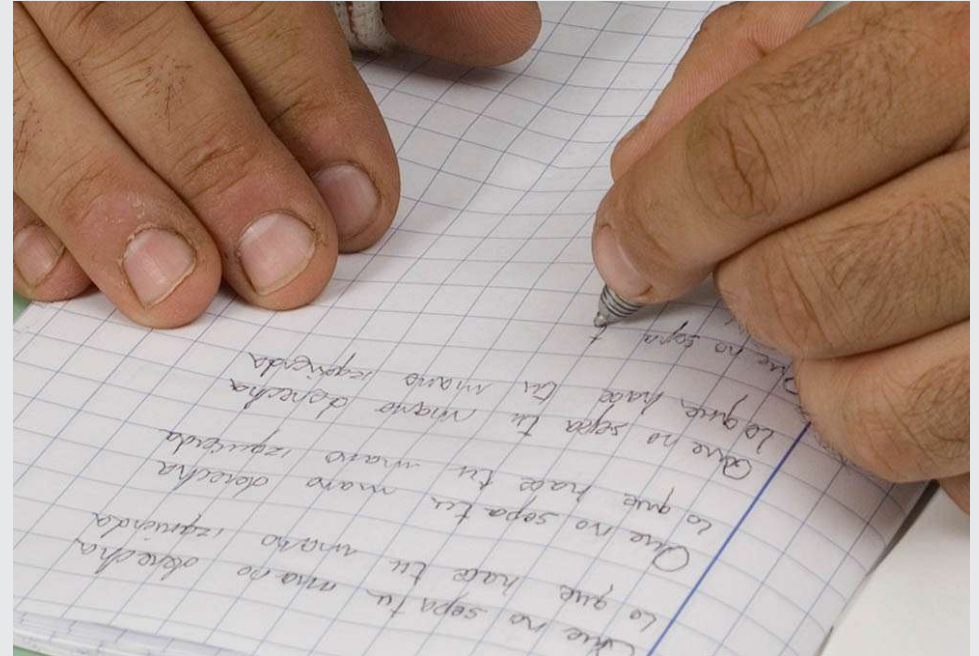 Que no sepa tu mano derecha
lo que hace tu mano izquierda
Que no sepa tu mano derecha
lo que hace tu mano izquierda
Que no sepa tu mano derecha
lo que hace tu mano izquierda
Que no sepa t